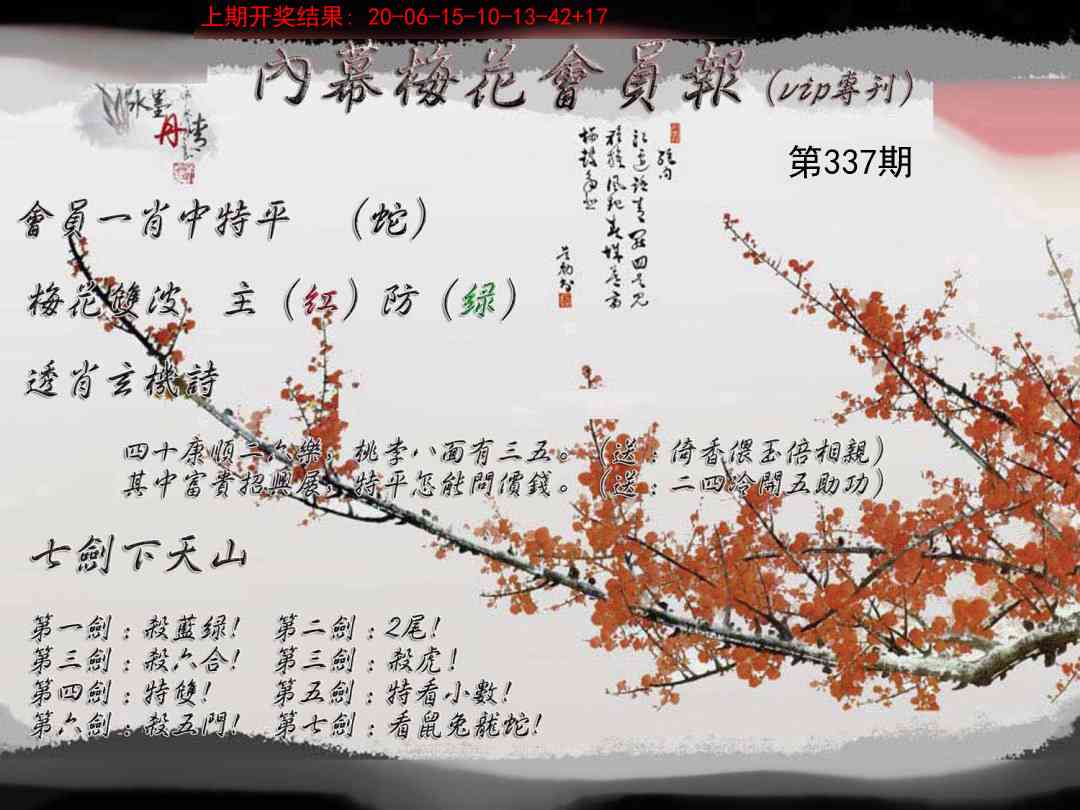 上期开奖结果: 20-06-15-10-13-42+17
內幕梅花會員報(vip專刊)
水墨
丹情
第337期
會員一肖中特平 (蛇)
梅花雙波 主(红)防(绿)
透肖玄機詩
四十康順二六樂,桃李八面有三五。(送:倚香偎玉倍相親)
其中富貴招興展,特平怎能問價錢。(送:二四冷開五助功)
七劍下天山
第一劍:殺藍绿! 第二劍:2尾!
第三劍:殺六合! 第三劍:殺虎!
第四劍:特雙! 第五劍:特看小數!
第六劍:殺五門! 第七劍:看鼠兔龍蛇!